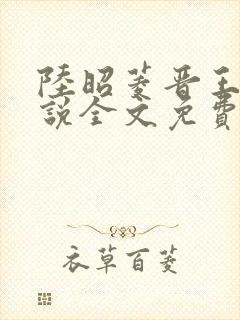 陸昭菱晋王
說全文免費
衣草百菱